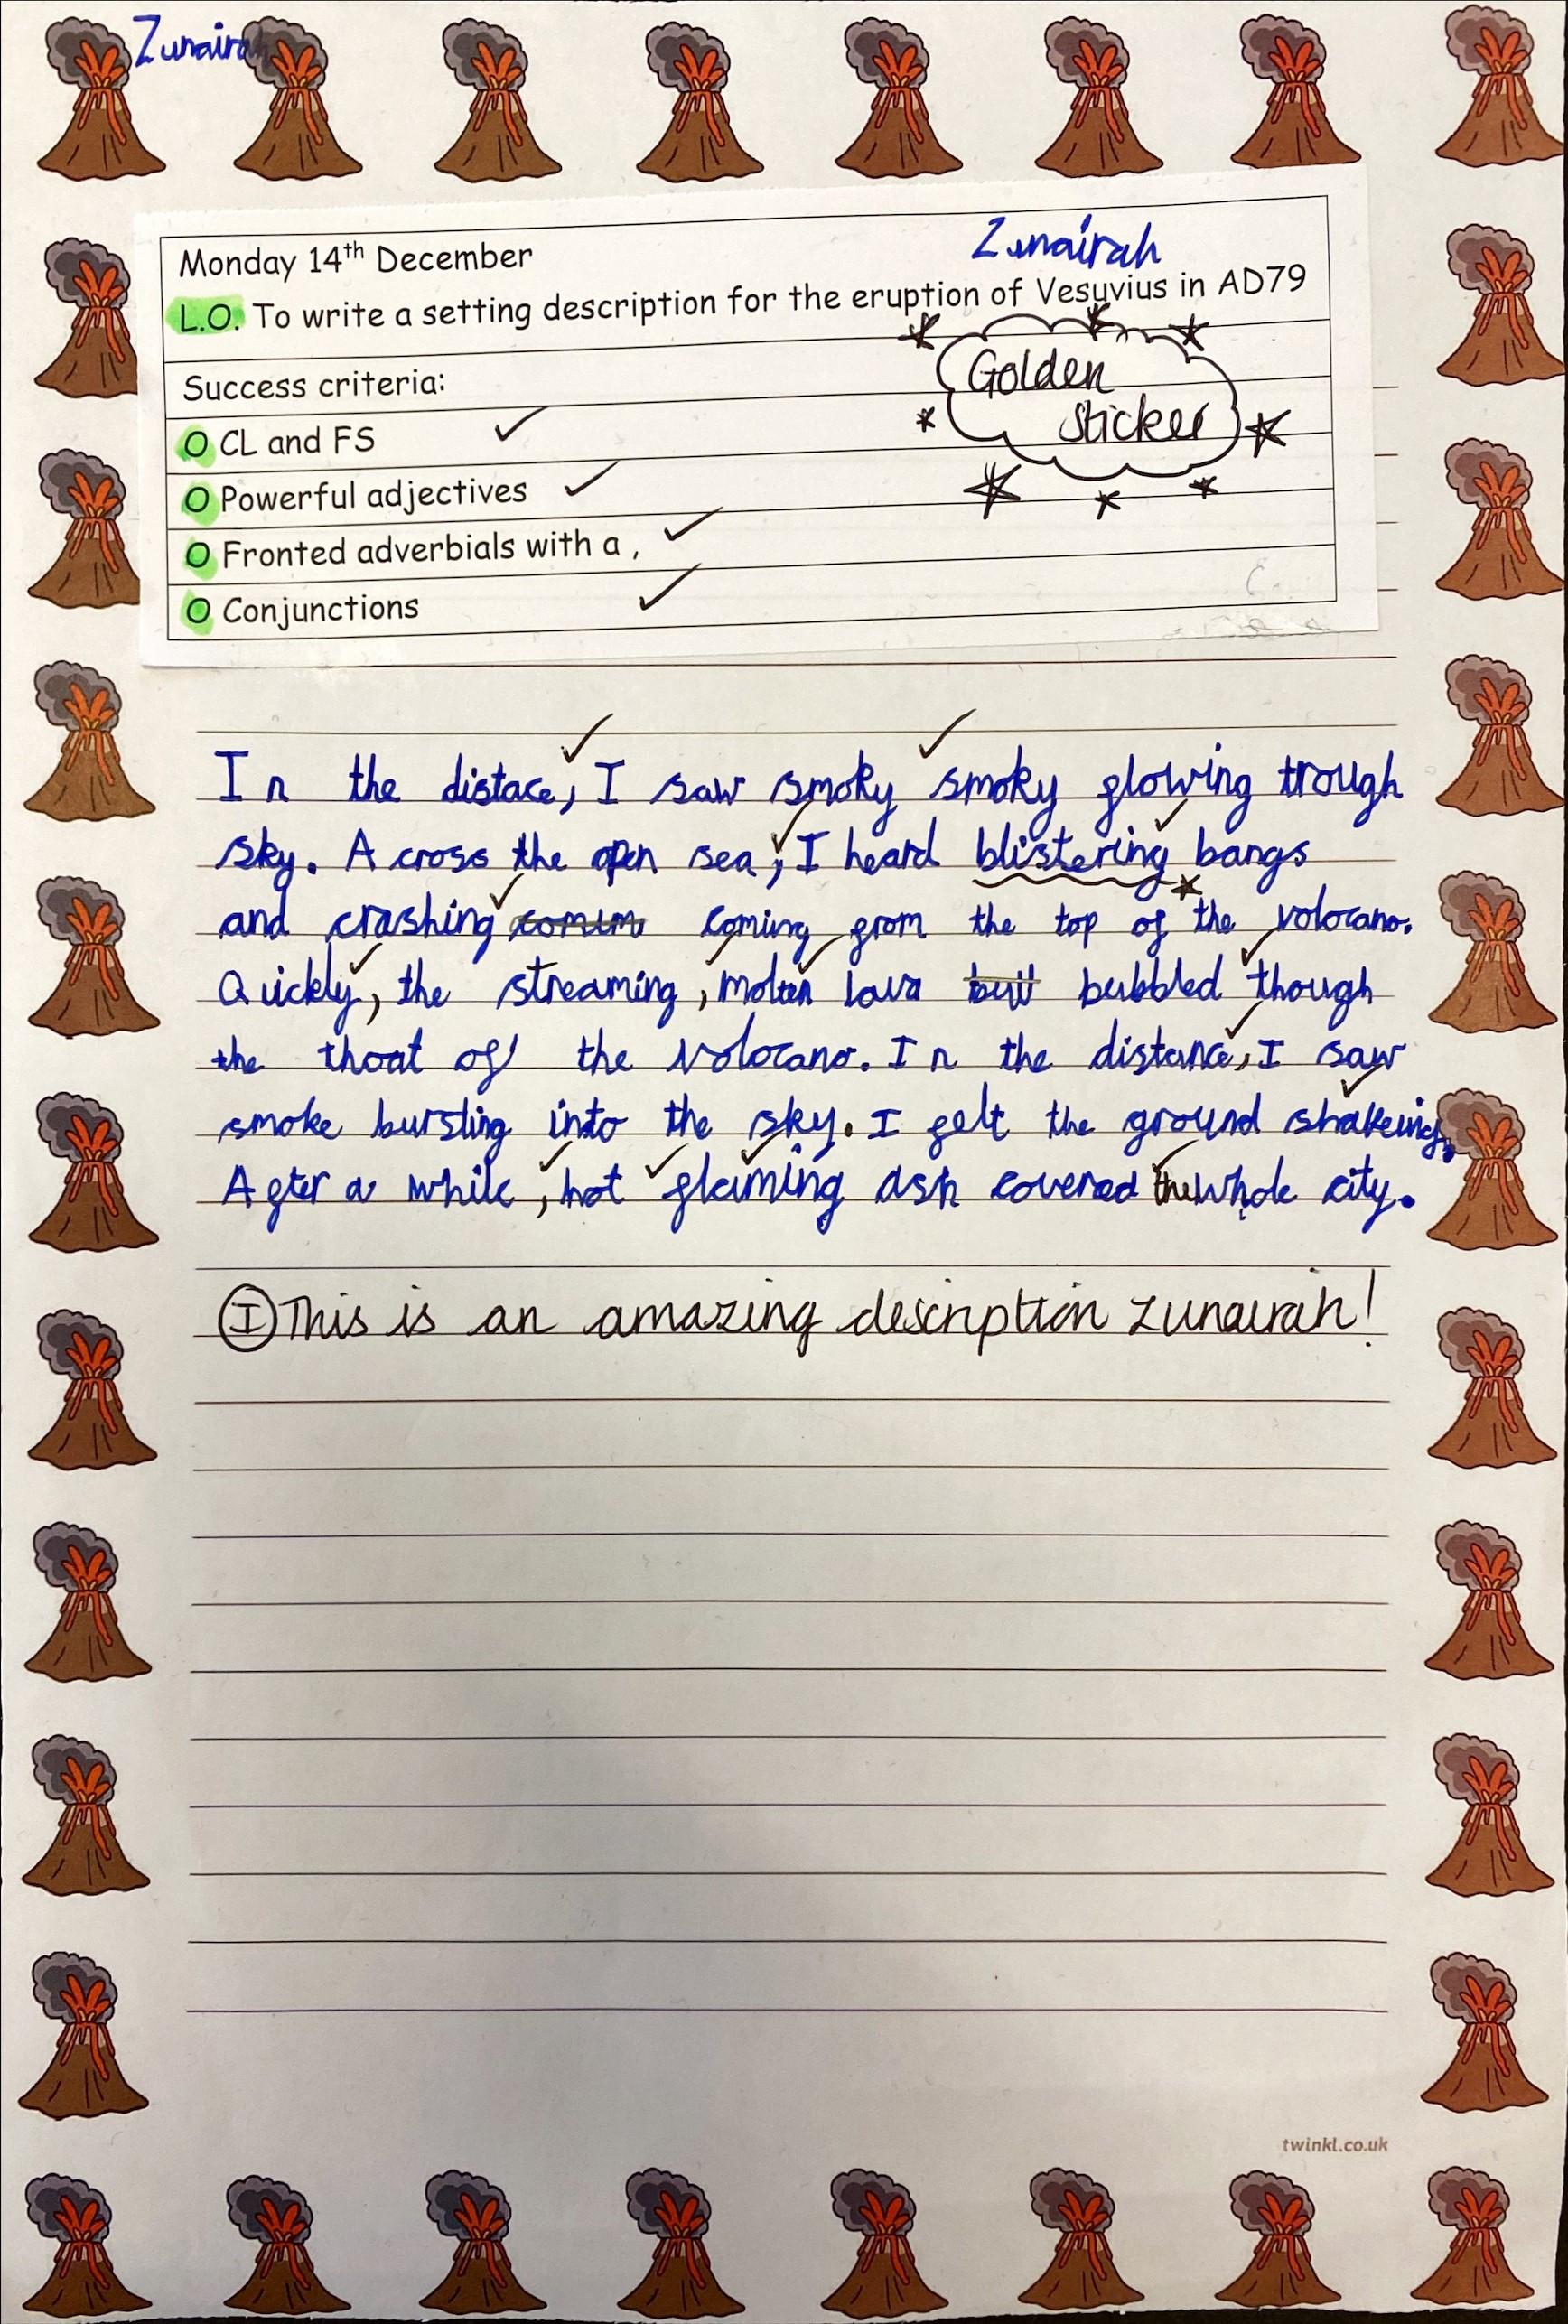 Zunairah
Monday 14th December
Zunairah
L.O. To write a setting description for the eruption of Vesuvius in AD79
Success criteria:
Golden
sticker
O CL and FS
O Powerful adjectives
O Fronted adverbials with a ,
O Conjunctions
In the distace, I saw smoky smoky glowing trough
sky. Across the open sea, I heard blistering bangs
and crashing comim coming from the top of the volocano.
Quickly, the streaming, molten lava bull bubbled though
the thoat of the volocano. In the distance, I saw
smoke bursting into the sky. I felt the ground shakeing.
After a while, hot flaming ash covered the whole city.
I This is an amazing description Zunairah!
twinkl.co.uk